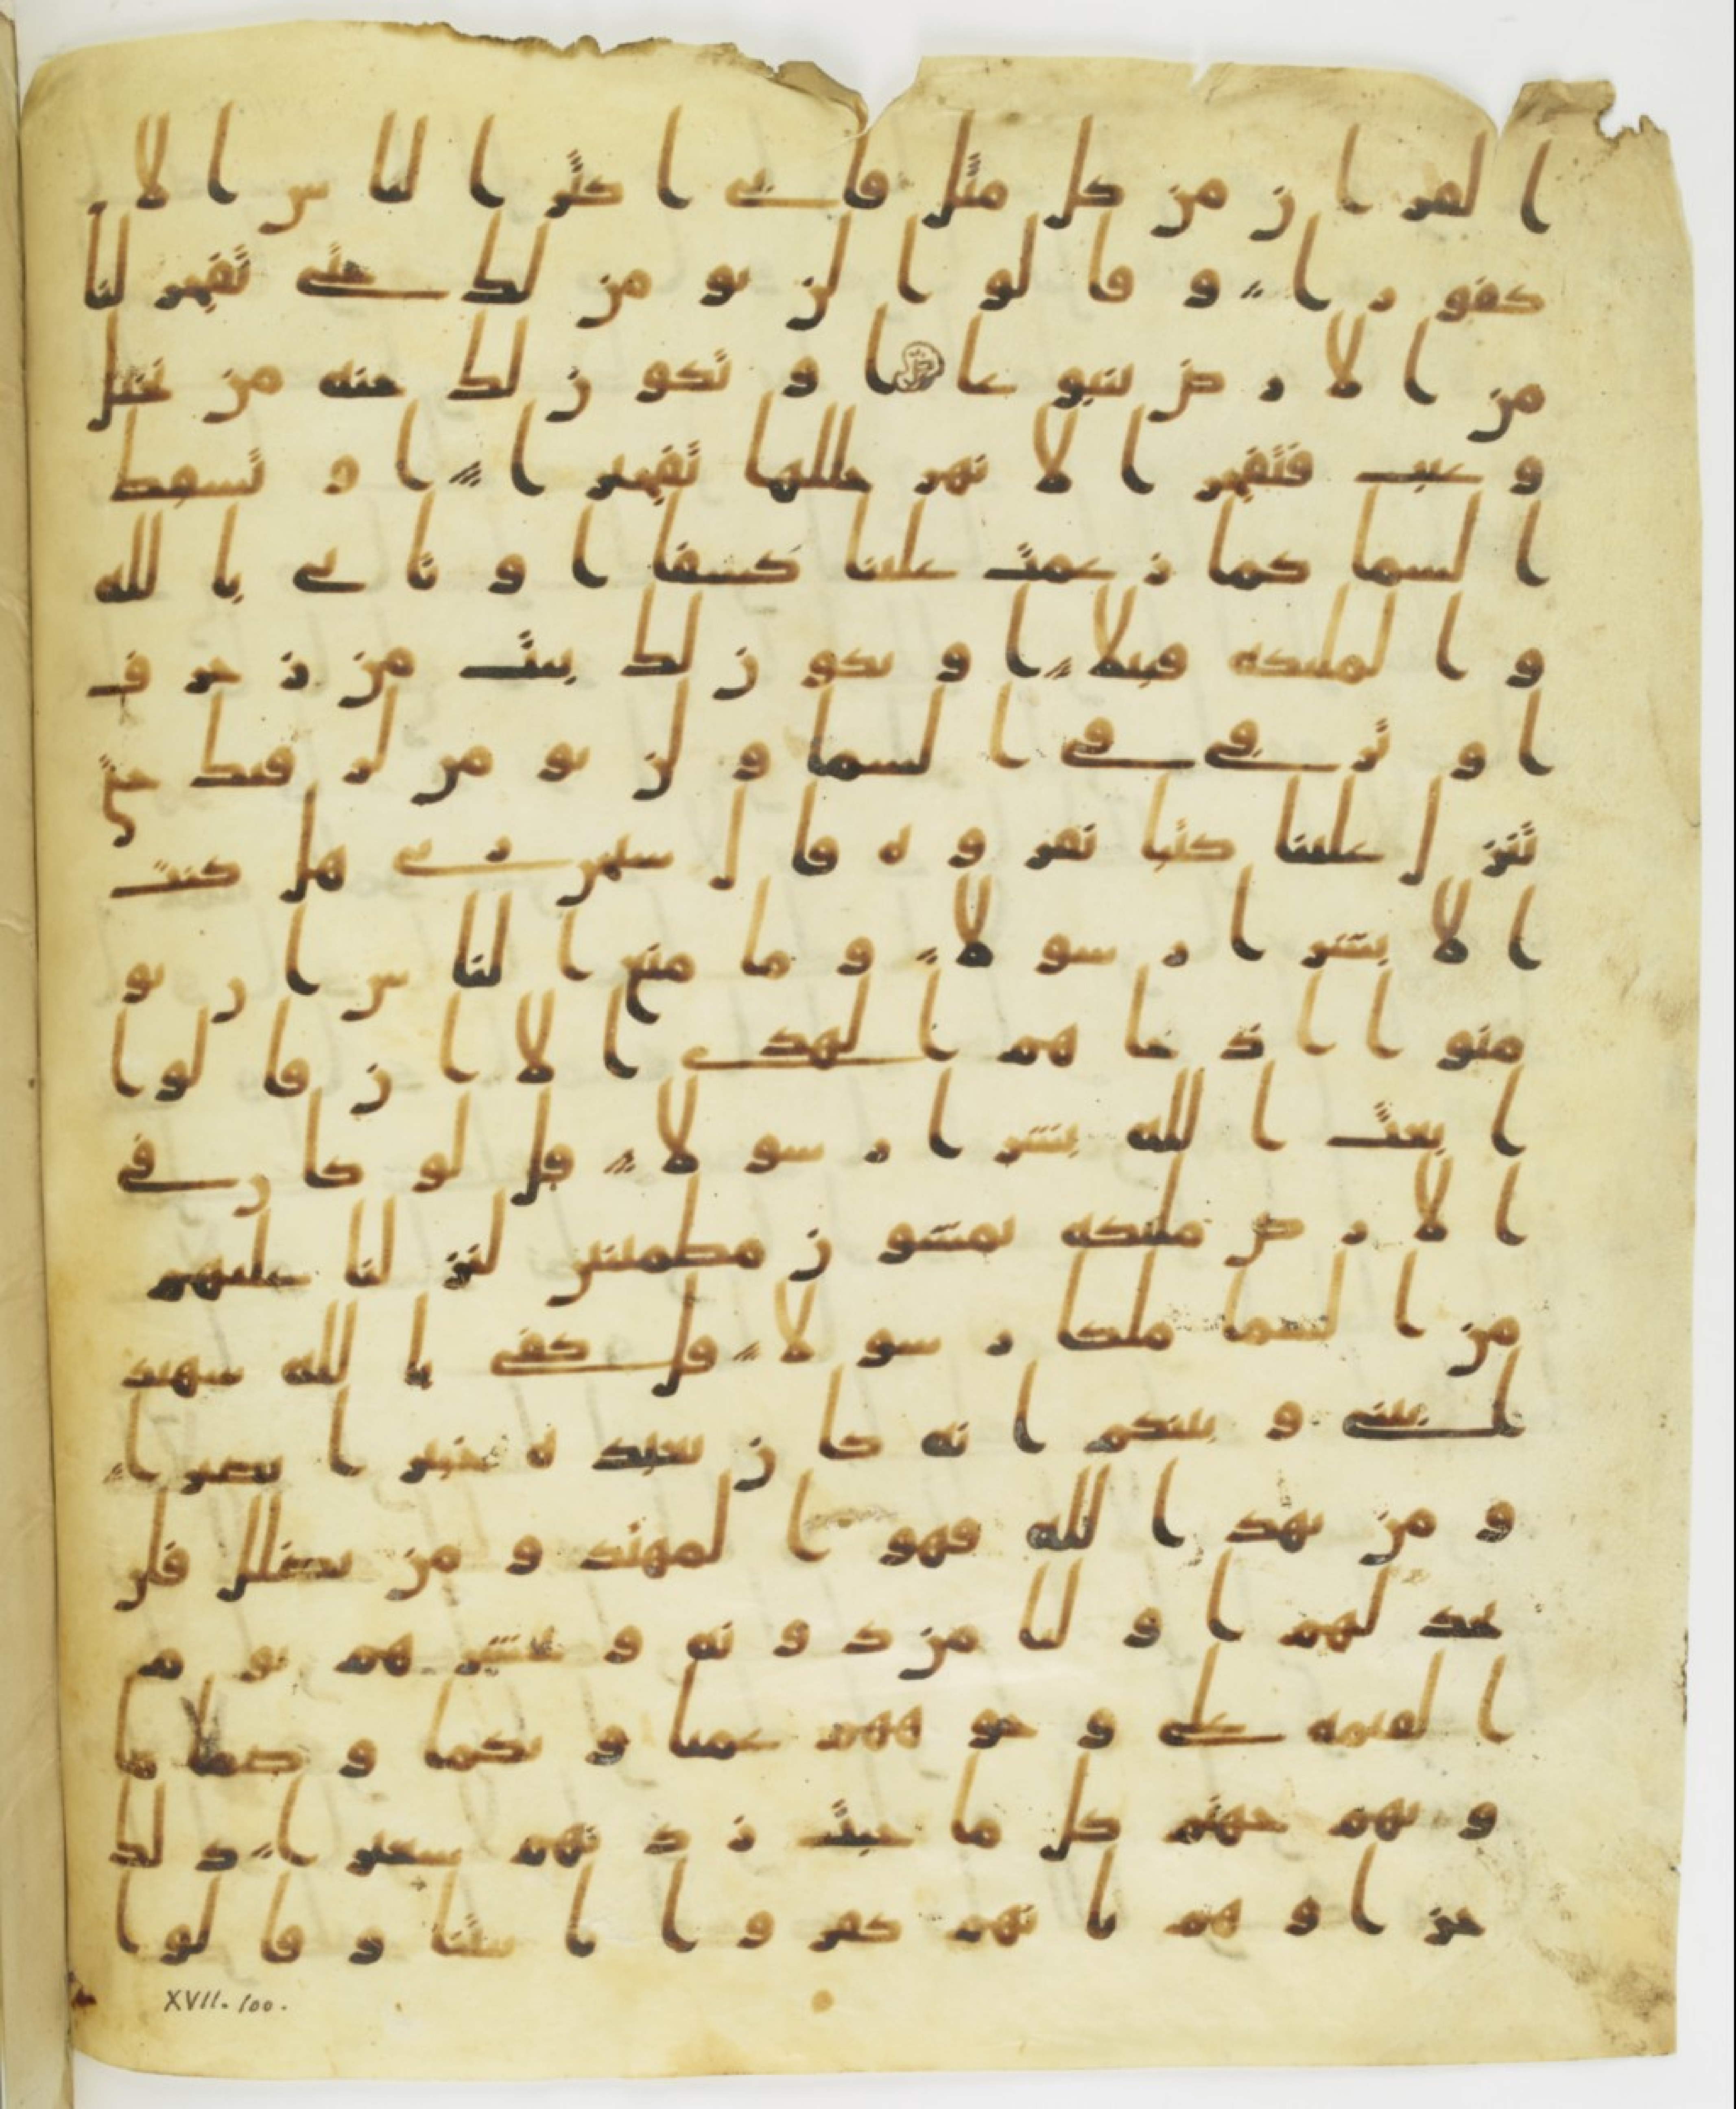 ا لقر ا ن من كل مثل فا بى ا كثر ا لنا س ا لا
كفو ر ا و قا لو ا لن نو من لك حتى تفجر لنا
من ا لا ر ض ينبو عا ا و تكو ن لك جنه من نخيل
و عنب فتفجر ا لا نهر خللها تفجير ا ا و تسقط
ا لسما كما ز عمت علينا كسفا ا و تا تى با لله
و ا لمليكه قبيلا ا و يكو ن لك بيت من ز خر ف
ا و تر قى فى ا لسما و لن نو من لر قيك حتى
تنز ل علينا كتبا نقر و ه قا ل سبحن ر بى هل كنت
ا لا بشر ا ر سو لا و ما منع ا لنا س ا ن يو
منو ا ا ذ جا هم ا لهدى ا لا ا ن قا لو ا
ا بعث ا لله بشر ا ر سو لا قل لو كا ن فى
ا لا ر ض مليكه يمشو ن مطمينين لنز لنا عليهم
من ا لسما ملكا ر سو لا قل كفى با لله شهيد
ا بينى و بينكم ا نه كا ن بعبد ه خبير ا بصير ا
و من يهد ا لله فهو ا لمهتد و من يضلل فلن
تجد لهم ا و ليا من د و نه و نحشر هم يو م
ا لقيمه على و جو ههم عميا و بكما و صما ما
و يهم جهنم كل ما خبت ز د نهم سعير ا ذ لك
جز ا و هم با نهم كفر و ا با يتنا و قا لو ا
XVII. 100.